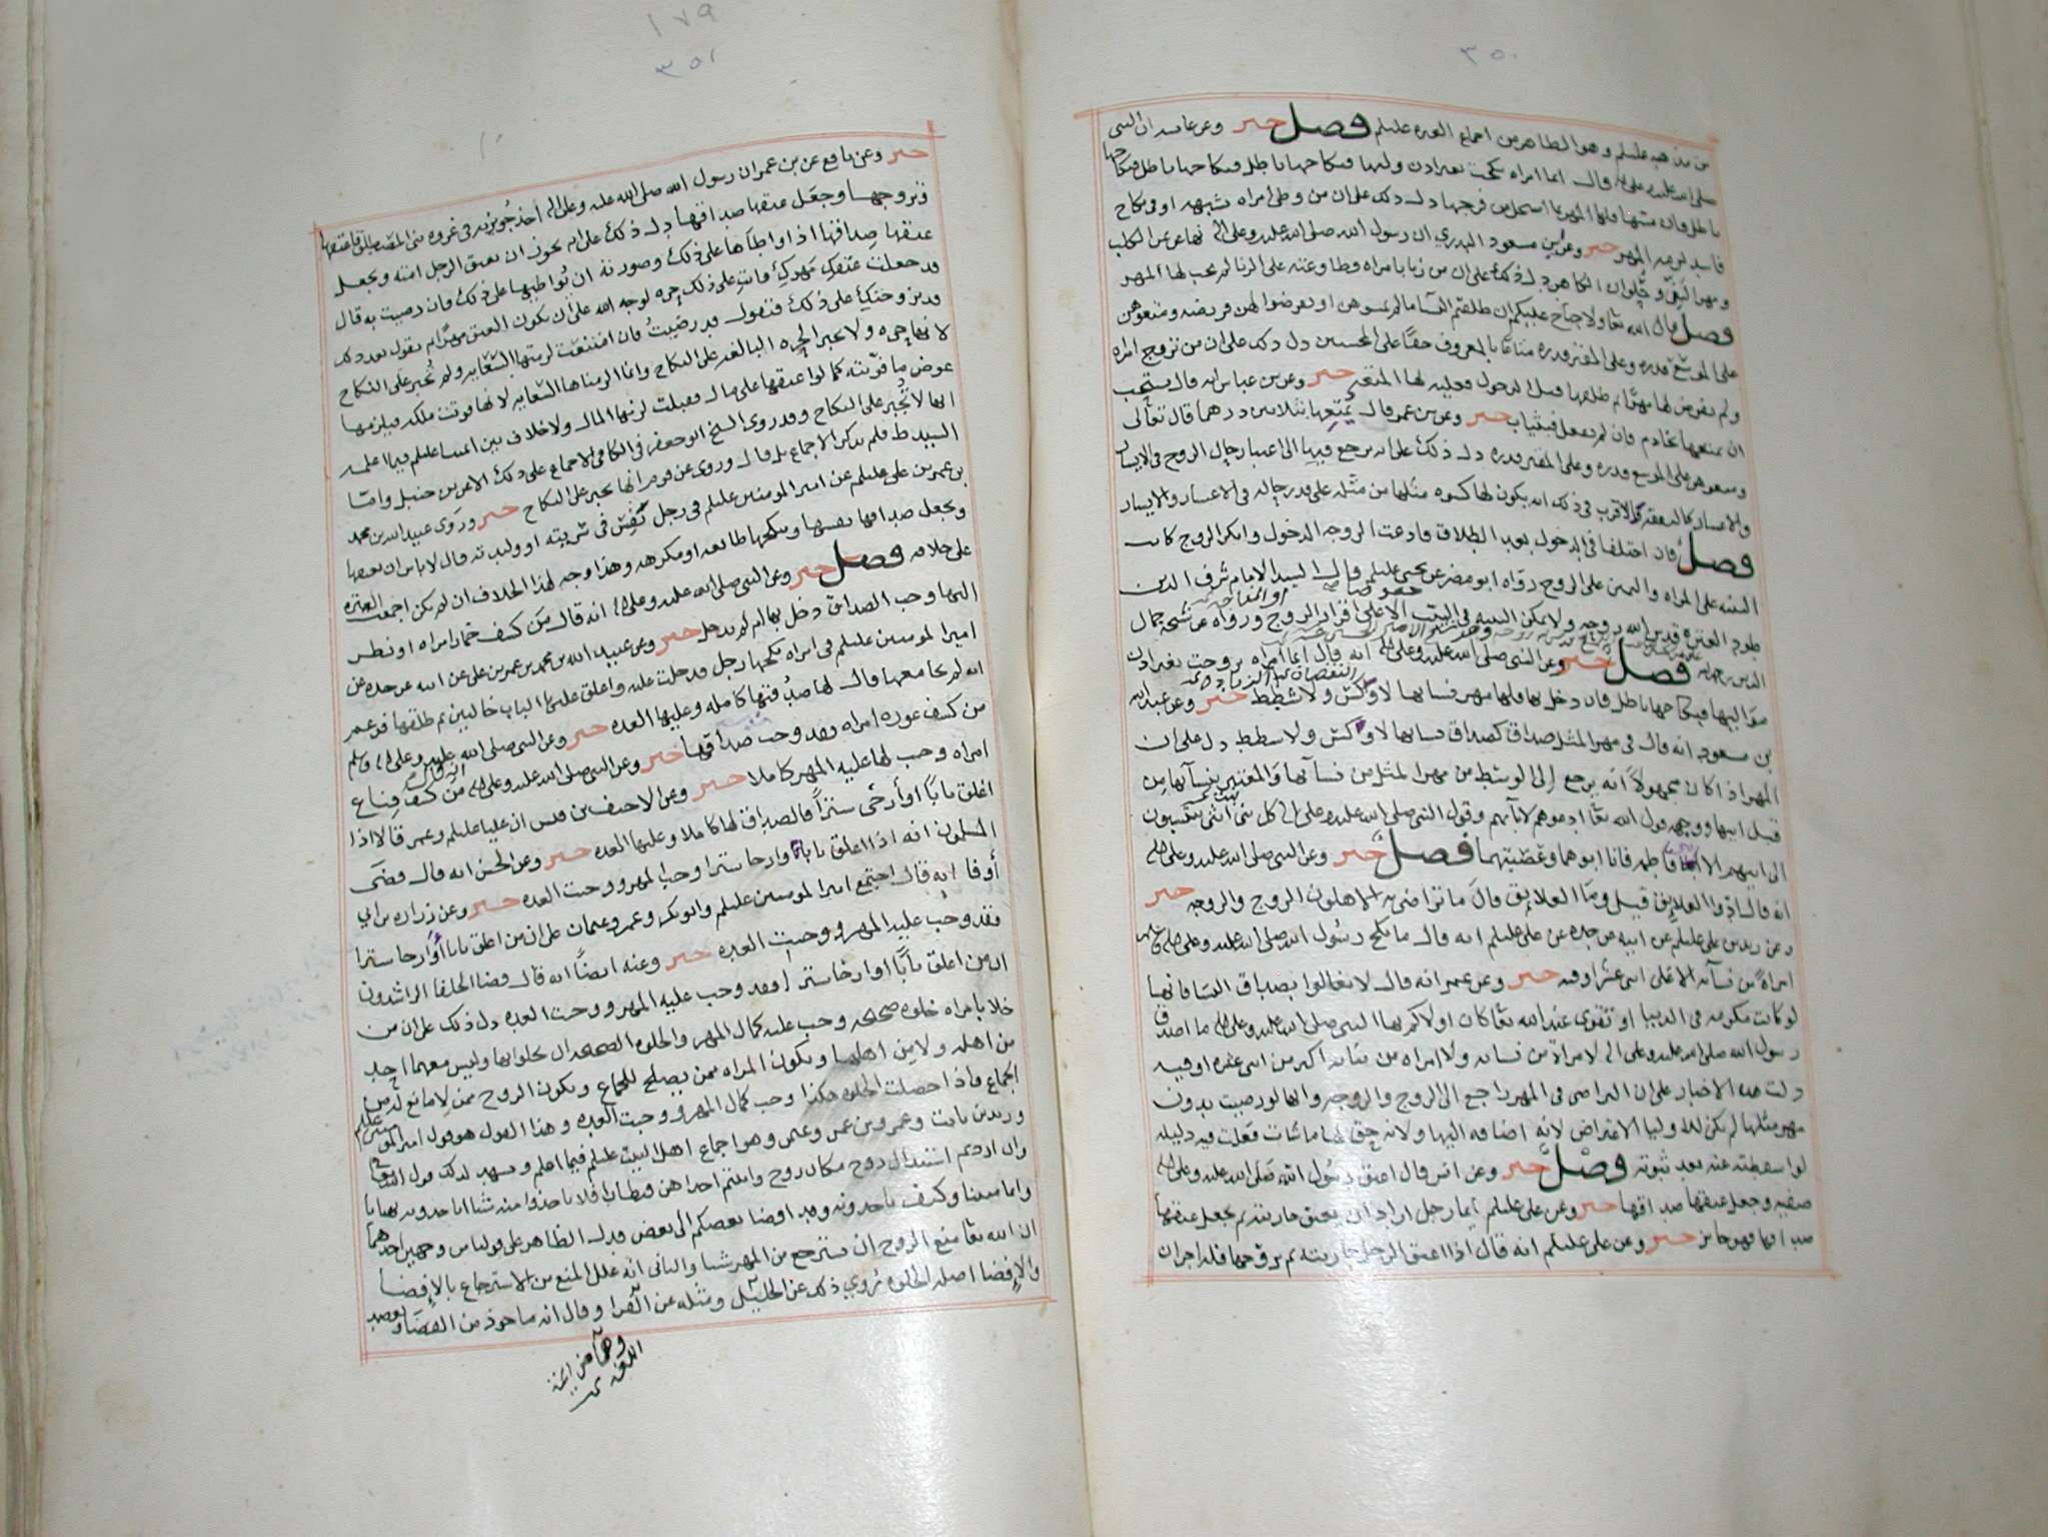 ٣٥٠
من مذهبه عليلم وهو الظاهر من اجماع العتره عليلم فصل خبر وعن عايشه ان النبى
صلى الله عليه وعلى اله قال ايما امراه نكحت بغير اذن وليها فنكاحها باطل فنكاحها باطل فنكاحها
باطل فان مسها فلها المهر بما استحل من فرجها دل ذلك على ان من وطى امراه بشبهه او فى نكاح
فاسد لزمه المهر خبر وعن بن مسعود البدري ان رسول الله صلى الله عليه وعلى اله نهى عن عن الكلب
ومهر البغي وحُلوان الكاهن دل ذلك على ان من زنا بامراه وطاوعته على الزنا لم يجب لها المهر
فصل قال الله تعا ولا جناح عليكم ان طلقتم النسآ ما لم تمسوهن او تفرضوا لهن فريضه ومتعوهن
على الموسع قدره وعلى المقتر قدره متاعًا بالمعروف حقًا على المحسنين دل ذلك على ان من تزوج امراه
ولم يفرض لها مهرًا ثم طلقها قبل الدخول فعليه لها المتعه خبر وعن بن عباس انه قال يستحب
ان يمتعها بخادم فان لم يفعل فبثياب خبر وعن بن عمر قال يُمتِعها بثلاثين درهما قال تعالى
ومتعوهن على الموسع قدره وعلى المقتر قدره دل ذلك على انه يرجع فيها الى اعتبار حال الزوج فى الايسار
والاعسار كالنفقه والاقرب فى ذلك انه يكون لها كسوه مثلها من مثله على قدر حاله فى الاعسار والايسار
فصل فان اختلفا فى الدخول بعد الطلاق فادعت الزوجه الدخول وانكر الزوج كانت
البينه على المراه واليمين على الزوج رواه ابو مضر عن يحيى عليلم قال السيد الامام شرف الدين
طود العتره قدس الله روحه ولا يمكن البينه فى الثيب الا على اقرار الزوج ورواه عن شيخه جمال
الدين رحمه الله فصل خبر وعن النبى صلى الله عليه وعلى اله انه قال ايما امراه تزوجت بغير اذن
مواليها فنكاحها باطل فان دخل بها فلها مهر نسايها لا وكس ولا شطط خبر وعن عبد الله
بن مسعود انه قال فى مهر المثل صداق كصداق نسايها لا وكس ولا شطط دل على ان
المهر اذا كان مجهولًا انه يرجع الى الوسط من مهر المثل من نسآئها والمعتبر بنسآئها من
قبل ابيها ووجهه قول الله تعا ادعوهم لابآئهم وقول النبى صلى الله عليه وعلى اله كل بنى انثى ينتسبون
الى ابيهم الا ابنا فاطمه فانا ابوهما وعصبتهما فصل خبر وعن النبى صلى الله عليه وعلى اله
انه قال ادوا العلايق قيل وما العلايق قال ما تراضى به الاهلون الزوج والزوجه خبر
وعن زيد بن على عليلم عن ابيه عن جده عن على عليلم انه قال ما نكح رسول الله صلى الله عليه وعلى اله وسلم
امراه من نسآئه الا على اثنى عشر اوقيه خبر وعن عمر انه قال لا تغالوا بصداق النسا فانها
لو كانت مكرمه فى الدنيا او تقوى عند الله تعا كان اولاكم بها النبى صلى الله عليه وعلى اله ما اصدق
رسول الله صلى الله عليه وعلى اله لامراة من نسائه ولا امراه من بناته اكثر من اثنى عشره اوقيه
دلت هذه الاخبار على ان التراضى فى المهر راجع الى الزوج والزوجه وانها لو رضيت بدون
مهر مثلها لم يكن للاوليا الاعتراض لانه اضافه اليها ولانه حق لها ما شات فعلت فيه دليله
لو اسقطته عنه بعد ثبوته فصل خبر وعن انس قال اعتق رسول الله صلى الله عليه وعلى اله
صفيه وجعل عتقها صداقها خبر وعن على عليلم ايما رجل اراد ان يعتق جاريته ثم يجعل عتقها
صداقها فهو جايز خبر وعن على عليلم انه قال اذا اعتق الرجل جاريته ثم يزوجها فله اجران
١٧٩
٣٥١
خبر وعن نافع عن بن عمر ان رسول الله صلى الله عليه وعلى اله اخذ جويريه فى غزوه بنى المصطلق فاعتقها
وتزوجها وجعل عتقها صداقها دل ذلك على انه يجوز ان يعتق الرجل امته ويجعل
عتقها صداقها اذا واطآها على ذلك وصورته ان تُواطيها على ذلك فان رضيت به قال
قد جعلت عتقكِ مهركِ فانتِ على ذلك حره لوجه الله على ان يكون العتق مهرًا ثم يقول بعد ذلك
قد تزوجتكِ على ذلك فتقول قد رضيتُ فان امتنعت لزمتها السعايه ولم تُجبر على النكاح
لانها حره ولا تجبر الحره البالغه على النكاح وانما الزمناها السعايه لانها فوتت ملكه فيلزمها
عوض ما فوّتته كما لو اعتقها على مال فقبلت لزمها المال ولا خلاف بين ايمتنا عليلم فيما اعلمه
انها لا تُجبر على النكاح وقد روى الشيخ ابو جعفر فى الكافى الاجماع على ذلك الا عن بن حنبل واما
السيد ط فلم يذكر الاجماع بل قال وروى عن قوم انها تجبر على النكاح خبر وروَى عبيد الله بن محمد
بن عمر بن على عليلم عن امير المومنين عليلم فى رجل يعتق سُريته او وليدته قال لا باس ان يعتقها
ويجعل صداقها نفسها وينكحها طائعه او مكرهه وهذا وجه لهذا الخلاف ان لم يكن اجمعت العتره
على خلافه فصل خبر وعن النبى صلى الله عليه وعلى اله انه قال من كشف خمار امراه او نظر
اليها وجب الصداق دخل بها ام لم يدخل خبر وعن عبيد الله بن محمد بن عمر بن على عن ابيه عن جده عن
امير المومنين عليلم فى امراه نكحها رجل فدخلت عليه واغلق عليها الباب خاليين ثم طلقها فزعم
انه لم يجامعها قال لها صدُقتها كامله وعليها العده خبر وعن النبى صلى الله عليه وعلى اله وسلم انه قال
من كشف عوره امراه فقد وجب صداقها خبر وعن النبى صلى الله عليه وعلى اله من كشف قناع
امراه وجب لها عليه المهر كاملا خبر وعن الاحنف بن قيس ان عليا عليلم وعمر قالا اذا
اغلق بابًا او أرخَى سترًا فالصداق لها كاملا وعليها العده خبر وعن الحسن انه قال قضى
المسلمون انه اذا اغلق بابًا او ارخا سترا وجب المهر ووجبت العده خبر وعن زراره بن ابي
أوفا انه قال اجتمع امير المومنين عليلم وابو بكر وعمر وعثمان على ان من اغلق بابا أو ارخا سترا
فقد وجب عليه المهر ووجبت العده خبر وعنه ايضًا انه قال قضا الخلفا الراشدون
ان من اغلق بابًا او ارخا سترا فقد وجب عليه المهر ووجبت العده دل ذلك على ان من
خلا بامراه خلوه صحيحه وجب عليه كمال المهر والخلوه الصحيحه ان يخلوا بها وليس معهما احد
من اهله ولا من اهلها ويكون المراه ممن يصلح للجماع ويكون الزوج ممن لا مانع له من
الجماع فاذا حصلت الخلوه هكذا وجب كمال المهر ووجبت العده وهذا القول هو قول امير المومنين عليلم
وزيد بن ثابت وعمر وبن عمر وعلى وهو اجماع اهل البيت عليلم فيما اعلم ويشهد لذلك قول الله تعا
وان اردتم استبدال زوج مكان زوج واتيتم احداهن قنطارا فلا تاخذوا منه شيا اتاخذونه بهتانا
واثما مبينا وكيف تاخذونه وقد افضا بعضكم الى بعض فدل الظاهر على قولنا من وجهين احدهما
ان الله تعا منع الزوج ان يسترجع من المهر شيا والثانى انه علل المنع من الاسترجاع بالإفضا
والإفضا اصله الخلوه رُوي ذلك عن الخليل ومثله عن الفرا وقال انه ماخوذ من الفضا وبعضه
وهمآ من ايمة
اللغه